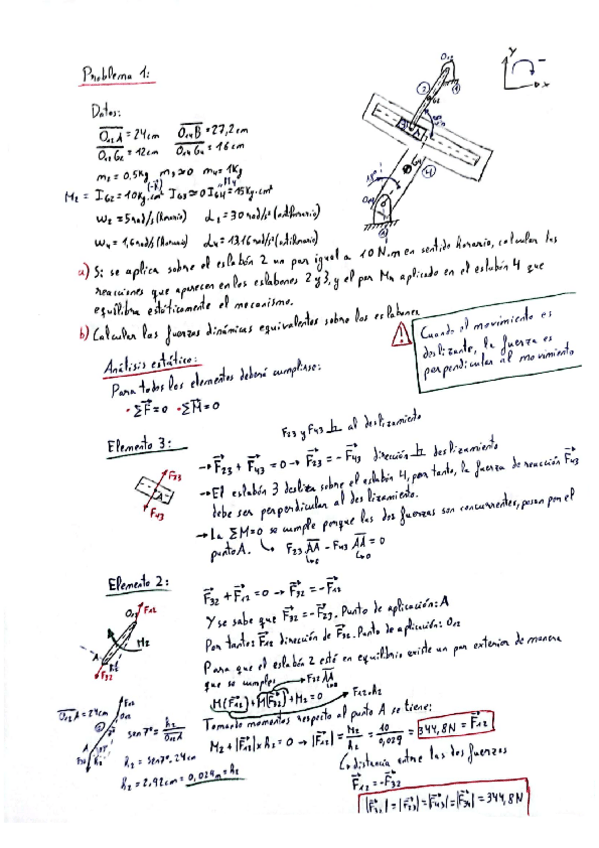 Problema 1:
Datos:
O₁₂A = 24cm O₁₄B = 27,2cm
O₁₂G₂ = 12cm O₁₄G₄ = 16cm
m₂ = 0,5kg m₃≃0 m₄ = 1kg
I_G2 = 10kg·cm² I_G3≃0 I_G4 = 15kg·cm²
ω₂ = 5rad/s (horario) α₂ = 30rad/s² (antihorario)
ω₄ = 1,6rad/s (horario) α₄ = 13,16rad/s² (antihorario)
a) Si se aplica sobre el eslabón 2 un par igual a 10N.m en sentido horario, calcular las
reacciones que aparecen en los eslabones 2 y 3, y el par M₄ aplicado en el eslabón 4 que
equilibra estáticamente el mecanismo.
b) Calcular las fuerzas dinámicas equivalentes sobre los eslabones
Cuando el movimiento es
deslizante, la fuerza es
perpendicular al movimiento
Análisis estático:
Para todos los elementos deberá cumplirse:
• ΣF = 0 • ΣM = 0
F₂₃ y F₄₃ ⊥ al deslizamiento
Elemento 3:
→ F₂₃ + F₄₃ = 0 → F₂₃ = -F₄₃ dirección ⊥ deslizamiento
→ El eslabón 3 desliza sobre el eslabón 4, por tanto, la fuerza de reacción F₄₃
debe ser perpendicular al deslizamiento.
→ La ΣM=0 se cumple porque las dos fuerzas son concurrentes, pasan por el
punto A. ↳ F₂₃ AA - F₄₃ AA = 0
F₂₃
A
F₄₃
Elemento 2:
F₃₂ + F₁₂ = 0 → F₃₂ = -F₁₂
Y se sabe que F₃₂ = -F₂₃. Punto de aplicación: A
Por tanto: F₁₂ dirección de F₃₂. Punto de aplicación: O₁₂
Para que el eslabón 2 esté en equilibrio existe un par exterior de manera
que se cumple:
F₃₂ AA
M(F₁₂) + M(F₃₂) + M₂ = 0
F₁₂·h₂
Tomando momentos respecto al punto A se tiene:
M₂ + |F₁₂| x h₂ = 0 → |F₁₂| = M₂/h₂ = 10/0,029 = 344,8N = F₁₂
↳ distancia entre las dos fuerzas
F₁₂ = -F₃₂
|F₁₂| = |F₂₃| = |F₄₃| = |F₃₄| = 344,8N
O₁₂
F₁₂
M₂
A
F₃₂
O₁₂A = 24cm
sen7° = h₂/O₁₂A
h₂ = sen7°·24cm
h₂ = 2,92cm = 0,029m = h₂